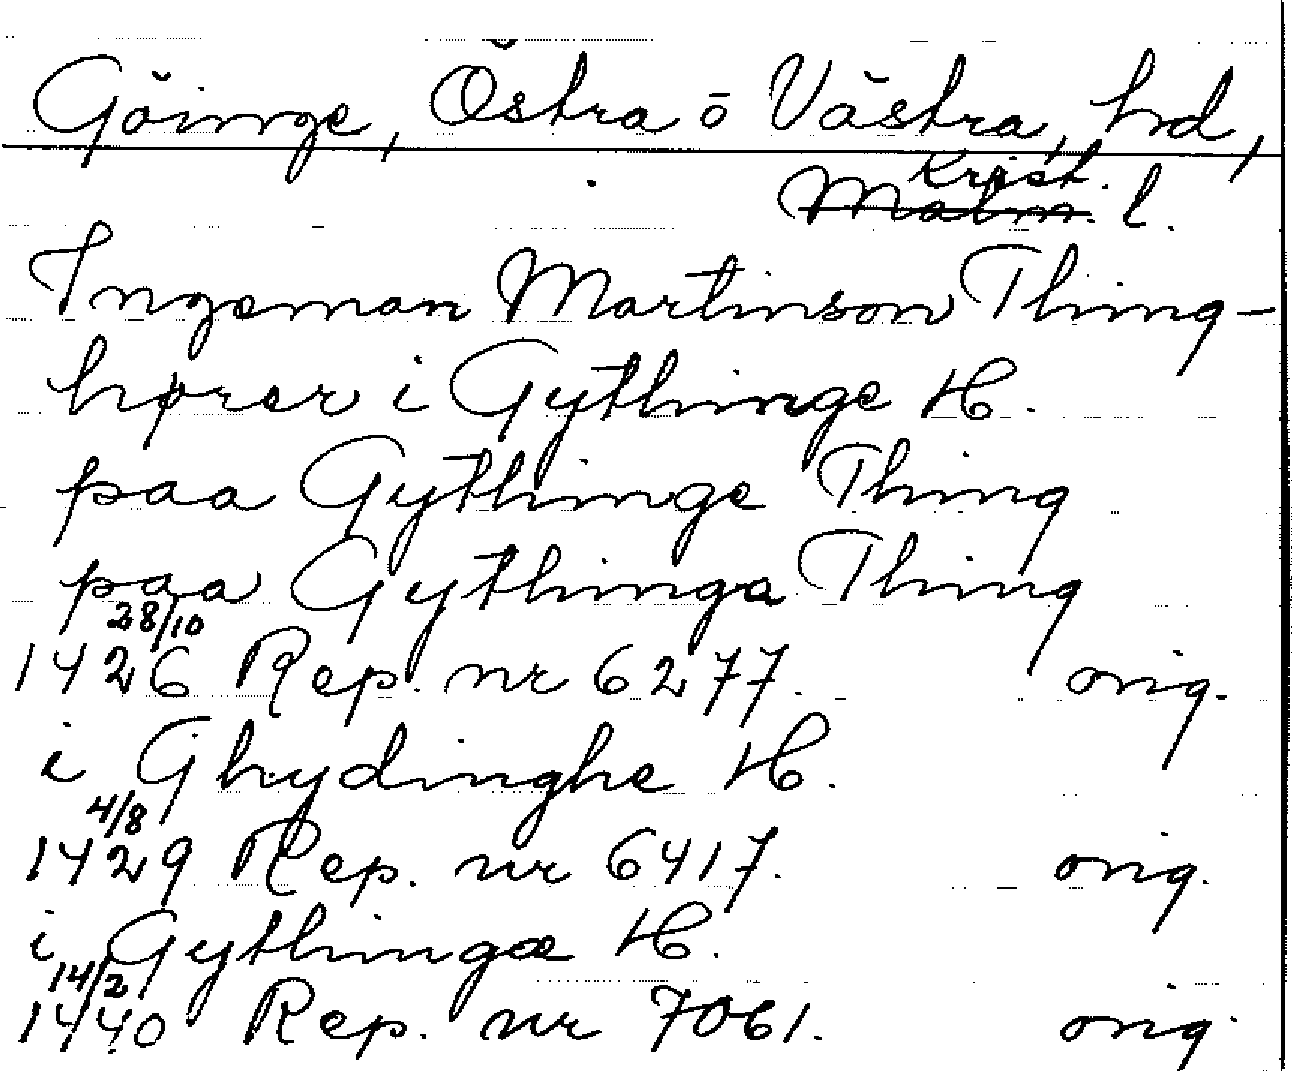 Göinge, Östra o Västra, hd,
Krist.
Malm. l.
Ingeman Martinson Thing-
hører i Gythinge H.
paa Gythinge Thing
paa Gythinga Thing
28/10
1426 Rep. nr 6277. orig.
i Ghydinghe H.
4/8
1429 Rep. nr 6417. orig.
i Gythingæ H.
14/2
1440 Rep. nr 7061. orig.